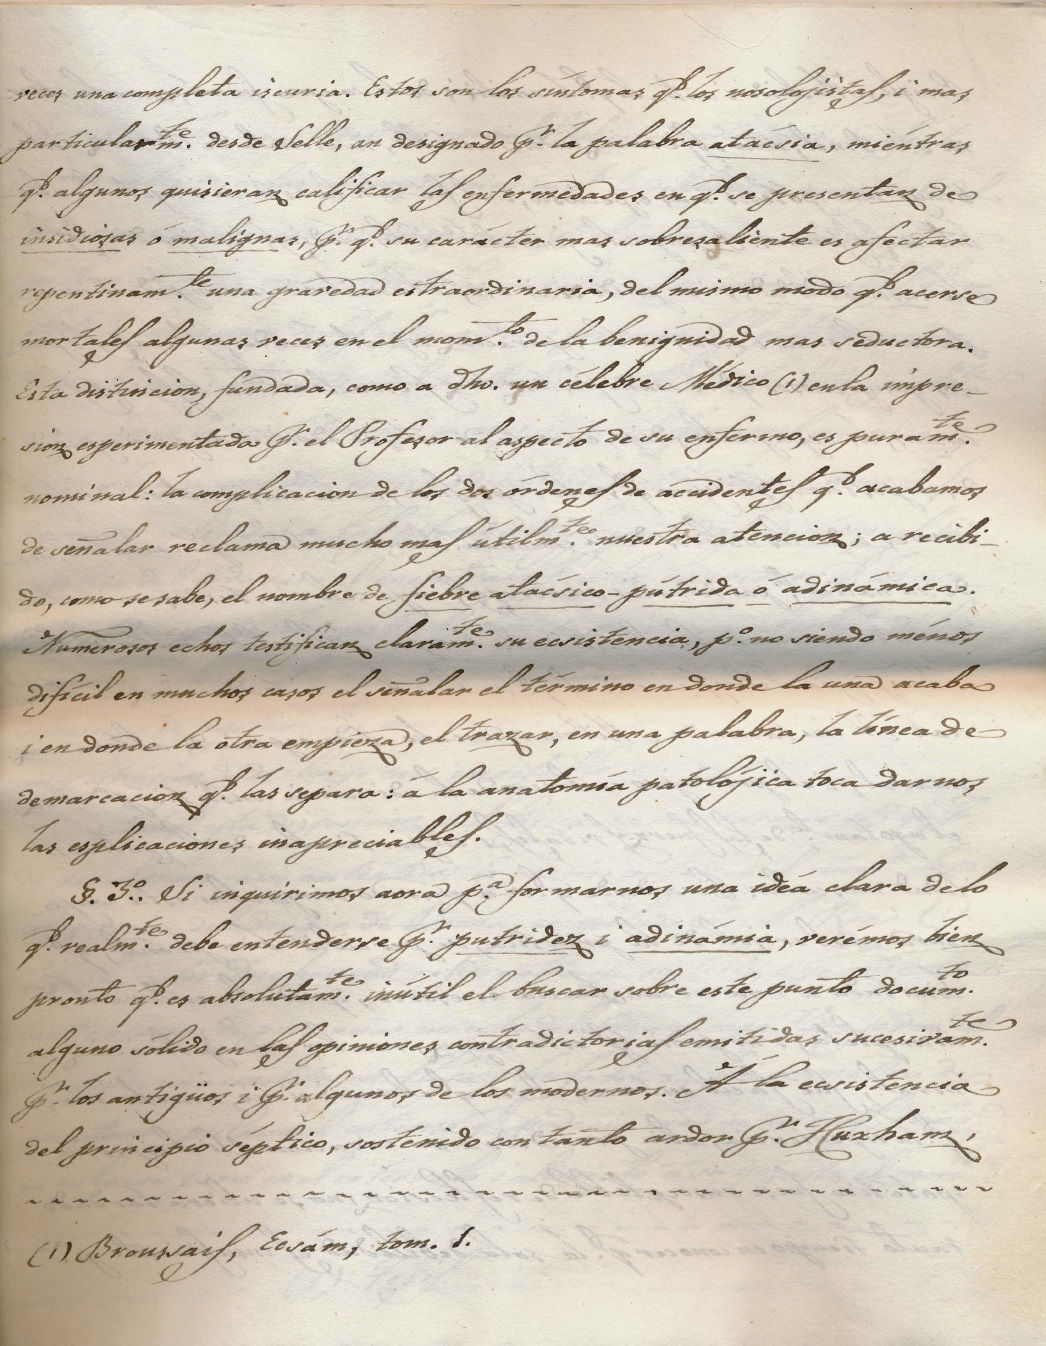 veces una completa iscuria. Estos son los síntomas q.e los nosolojistas, i mas
particularm.te desde Selle, an designado p.r la palabra atácsia, miéntras
q.e algunos quisieran calificar las enfermedades en q.e se presentan de
insidiosas ó malignas, p.r q.e su carácter mas sobresaliente es afectar
repentinam.te una gravedad estraordinaria, del mismo modo q.e acerse
mortales algunas veces en el mom.to de la benignidad mas seductora.
Esta distincion, fundada, como a dho. un célebre Médico (1) en la impre-
sion esperimentada p.r el Profesor al aspecto de su enfermo, es puram.te
nominal: la complicacion de los dos órdenes de accidentes q.e acabamos
de señalar reclama mucho mas útilm.te nuestra atencion; a recibi-
do, como se sabe, el nombre de fiebre atácsico-pútrida ó adinámica.
Numerosos echos testifican claram.te su ecsistencia, p.o no siendo ménos
dificil en muchos casos el señalar el término en donde la una acaba
i en donde la otra empieza, el trazar, en una palabra, la línea de
demarcacion q.e las separa: á la anatomía patolójica toca darnos
las esplicaciones inapreciables.
§. 3.o. Si inquirimos aora p.a formarnos una idéa clara de lo
q.e realm.te debe entenderse p.r putridez i adinámia, verémos bien
pronto q.e es absolutam.te inútil el buscar sobre este punto docum.to
alguno sólido en las opiniones contradictorias emitidas sucesivam.te
p.r los antigüos i p.r algunos de los modernos. Á la ecsistencia
del principio séptico, sostenido con tanto ardor p.r Huxham,
(1) Broussais, Ecsám, tom. 1.